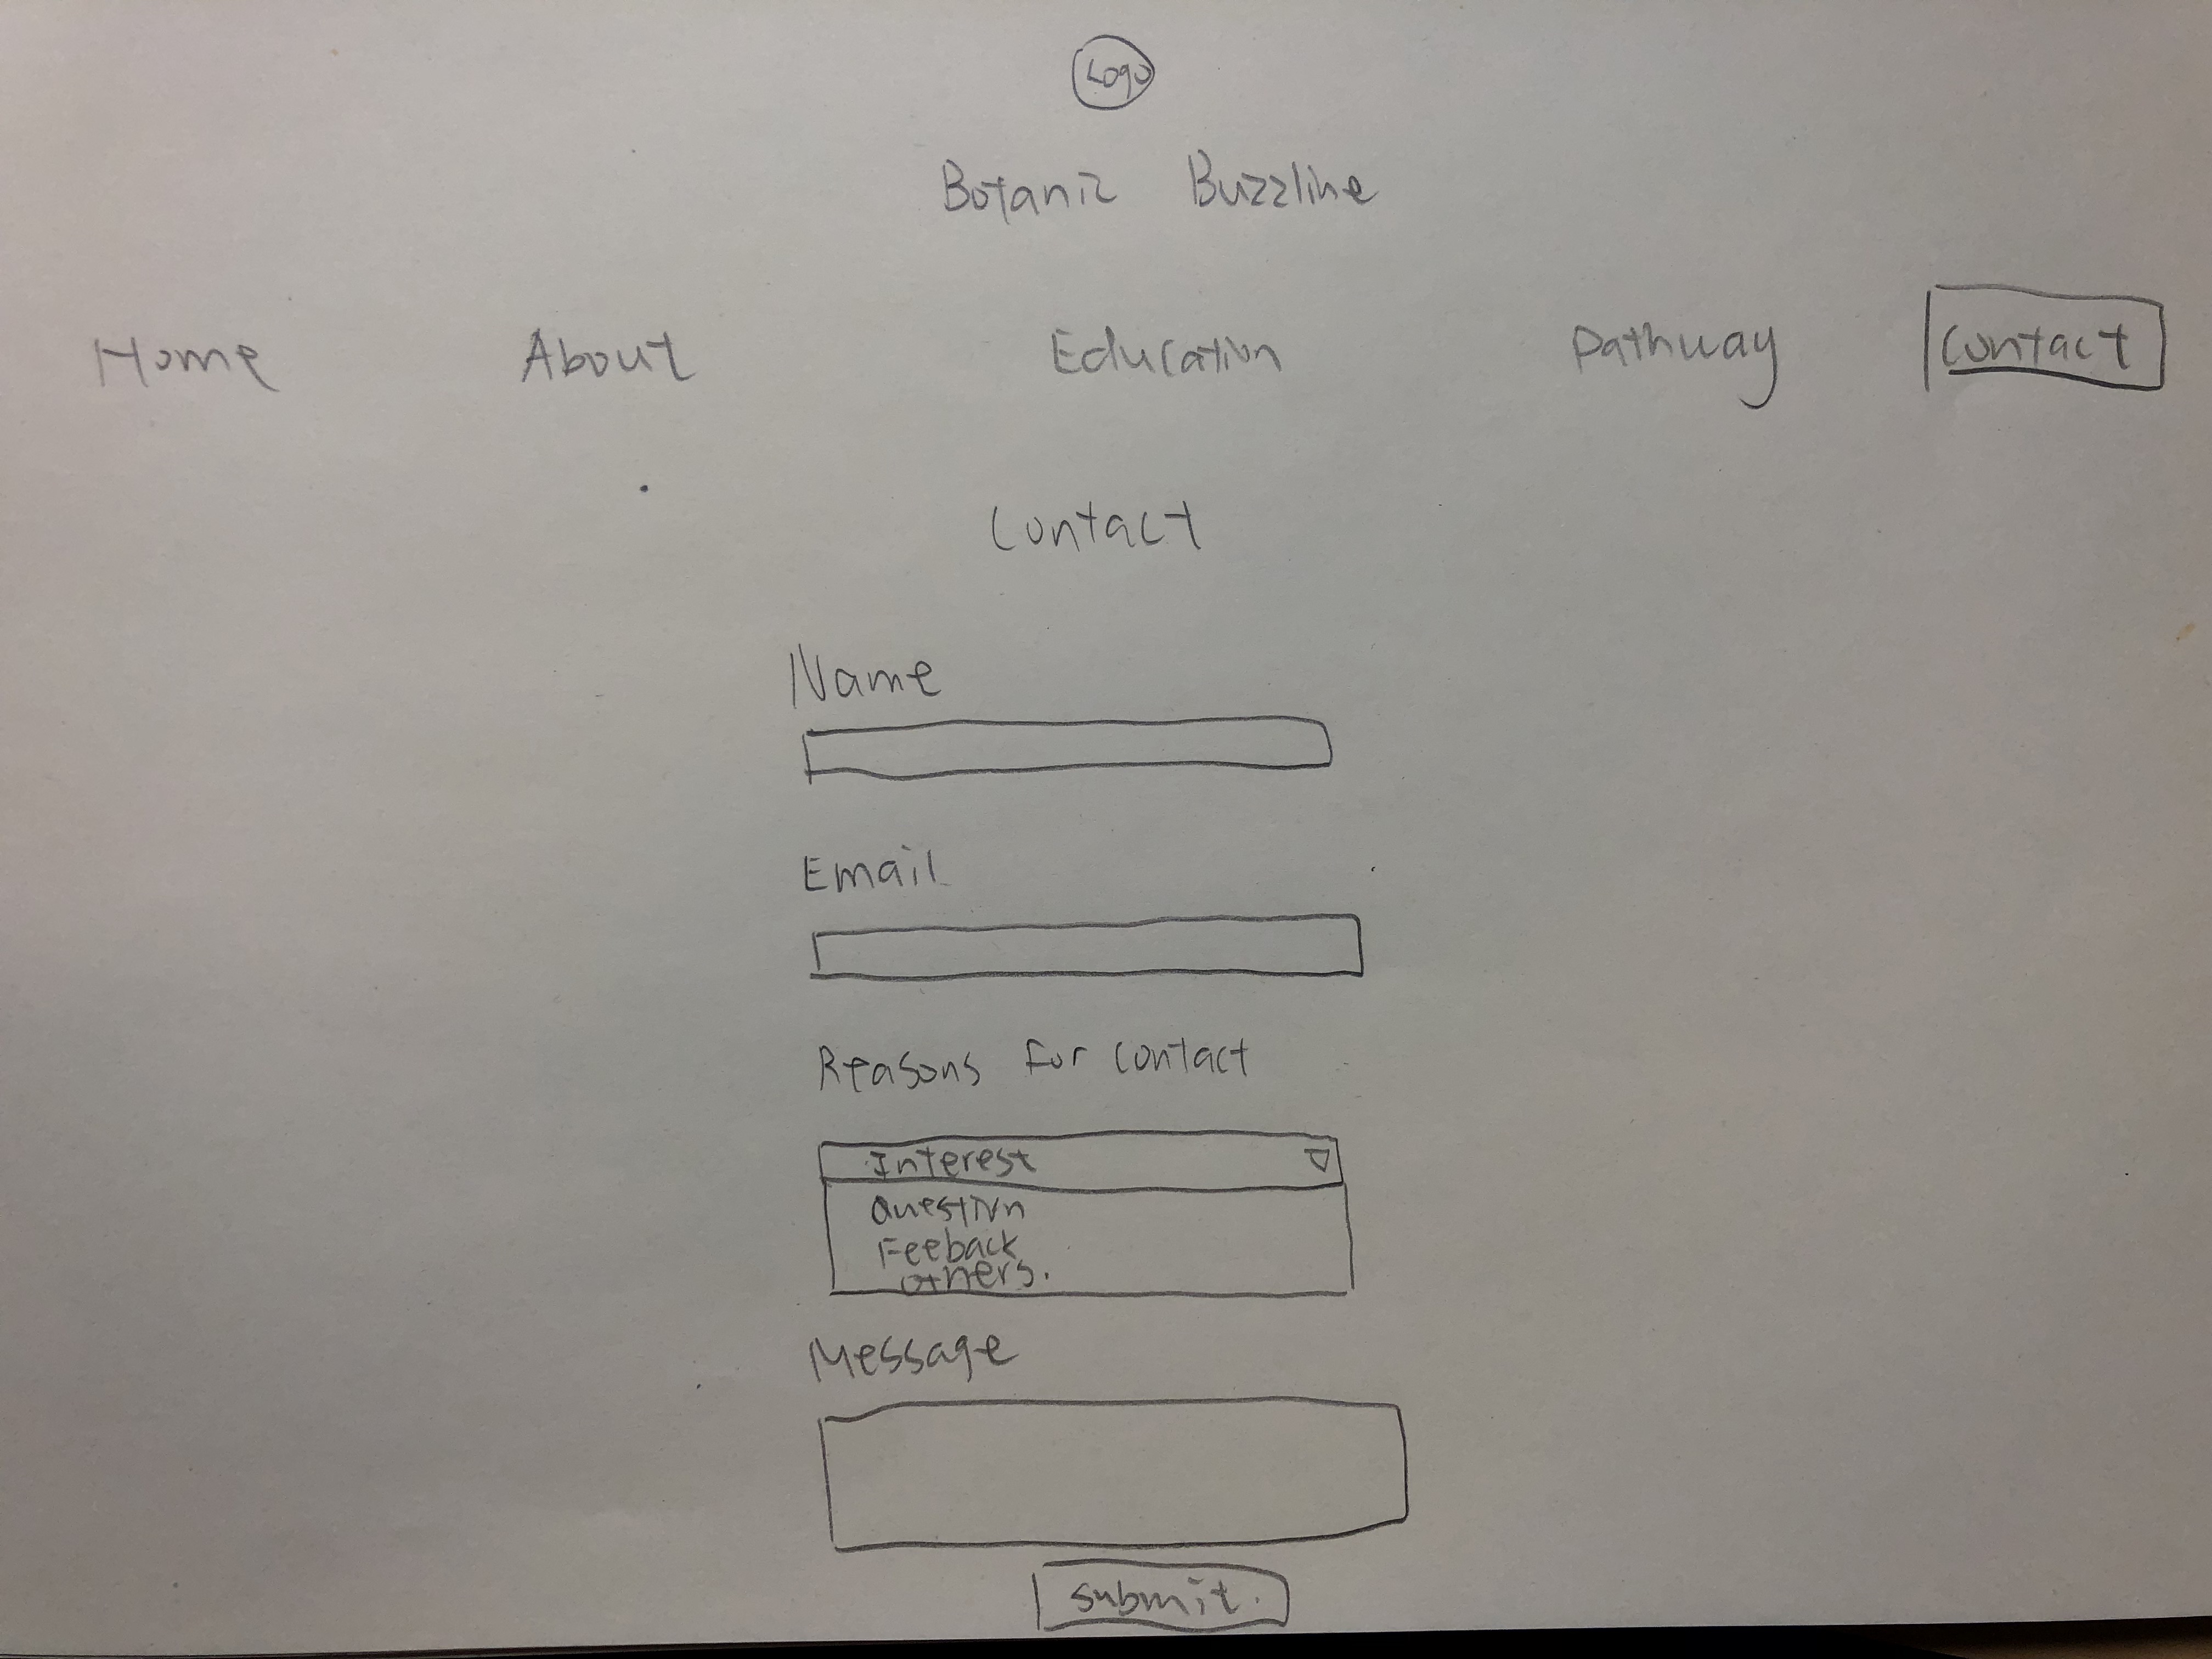 Logo
Botanic Buzzline
Home About Education Pathway Contact
Contact
Name
Email
Reasons For contact
Interest
Question
Feeback
others.
Message
submit.